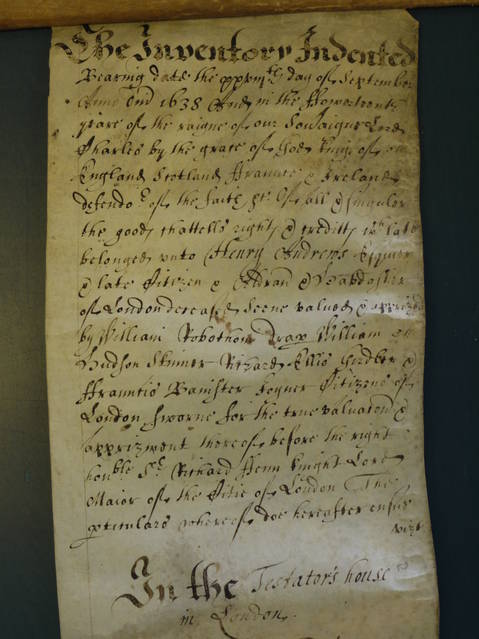 The Inventory Indented
Bearing date the xxvmth day of September
Anno Dni 1638 And in the flowerteenth
yeare of the raigne of our Souaigne Lord
Charles by the grace of God king of
England Scotland ffrannce & Ireland
defendor of the faith &c Of all & singuler
the goods chattells rights & creditts wch late
belonged vnto Henry Andrews Esquier
& late Citizen & Aldran & Haberdasher
of London deceased Seene valued & apprized
by William Robothom Draper William
Hudson Skinner Richard Ellis Girdler &
ffrauncis Banister Joyner Citizens of
London sworne for the true valuacon &
apprizment thereof before the right
honble Sr Richard ffenn knight Lord
Maior of the Citie of London The
pticulars whereof doe hereafter ensue
vizt
In the Testator's house
in London